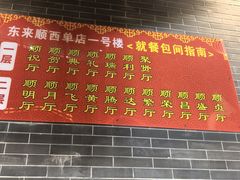 东来顺西单店一号楼<就餐包间指南>
一层
顺祝厅
顺贺厅
顺典厅
顺礼厅
顺瑞厅
顺利厅
聚贤厅
二层
顺明厅
顺月厅
顺飞厅
顺黄厅
顺腾厅
顺达厅
顺繁厅
顺荣厅
顺昌厅
顺盛厅